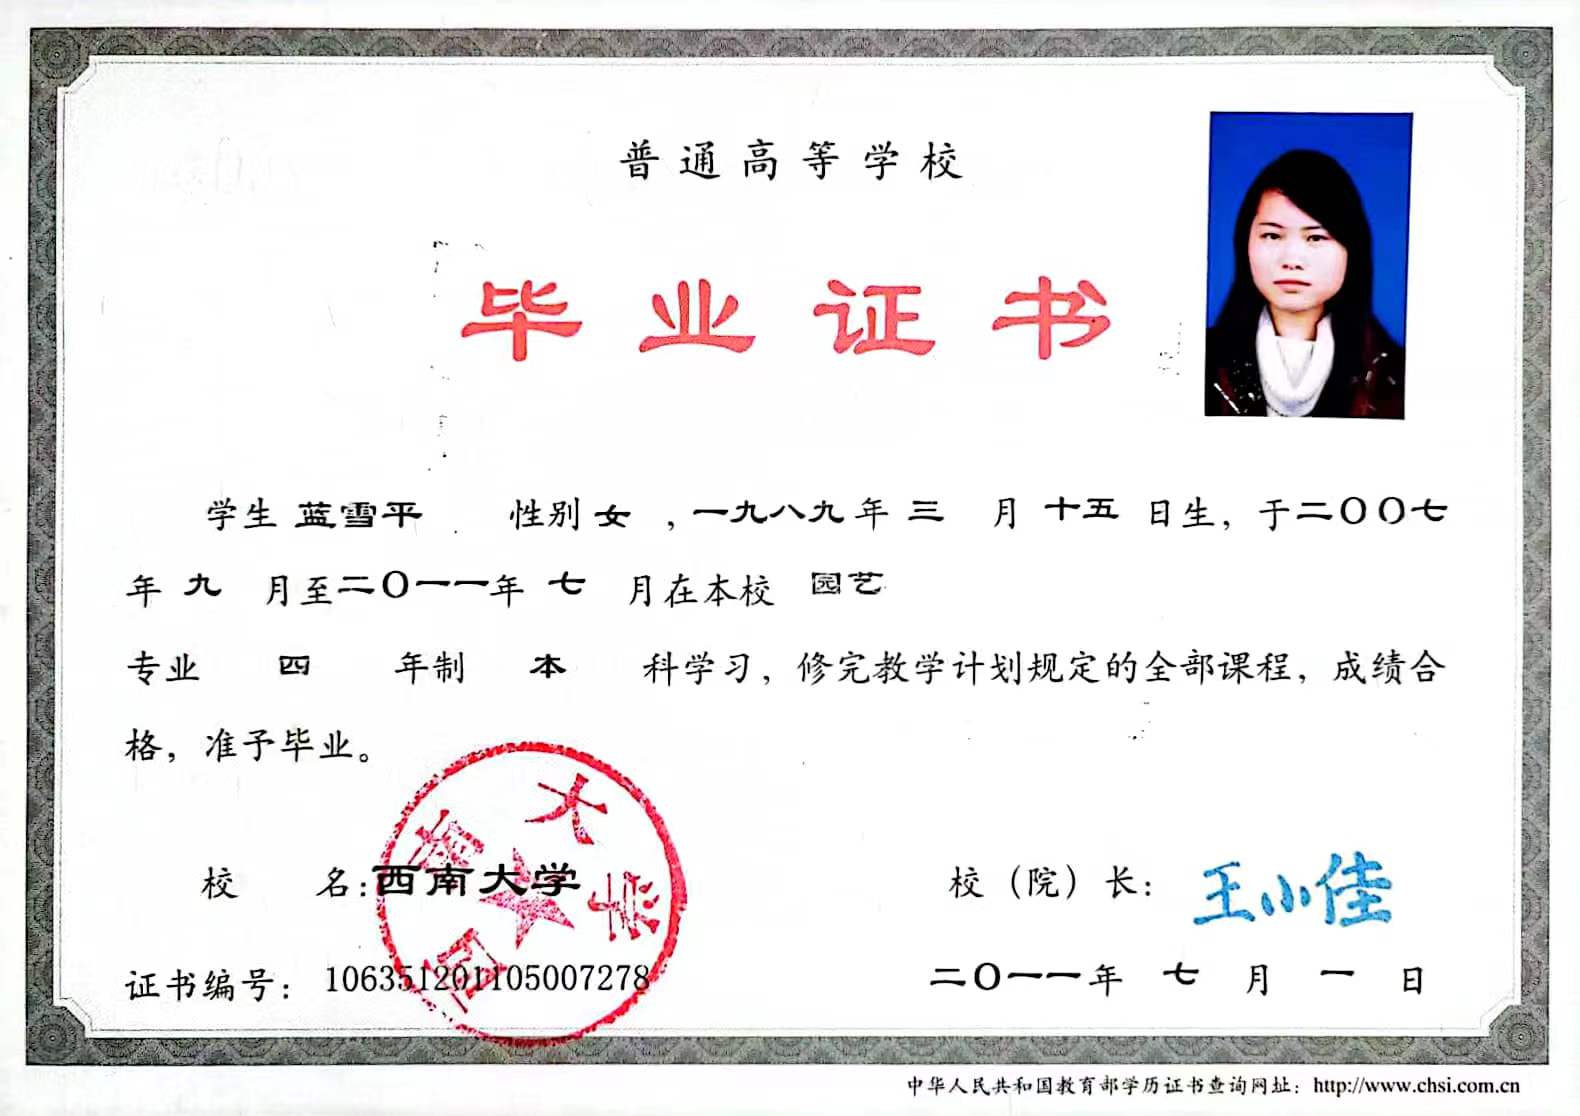 普通高等学校
毕业证书
学生 蓝雪平 性别 女 ,一九八九年 三 月 十五 日生，于二〇〇七
年 九 月至二〇一一年 七 月在本校 园艺
专业 四 年制 本 科学习，修完教学计划规定的全部课程，成绩合
格，准予毕业。
西南大学
校 名：西南大学
校（院）长：王小佳
证书编号：106351201105007278
二〇一一年 七 月 一 日
中华人民共和国教育部学历证书查询网址：http://www.chsi.com.cn